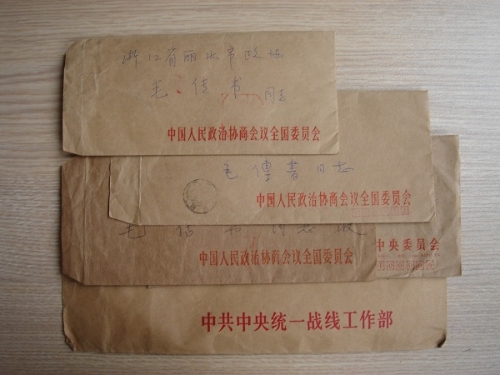 浙江省丽水市政协
毛传书 同志
中国人民政治协商会议全国委员会
毛传書同志
中国人民政治协商会议全国委员会
毛
中央委员会
中国人民政治协商会议全国委员会
中共中央统一战线工作部